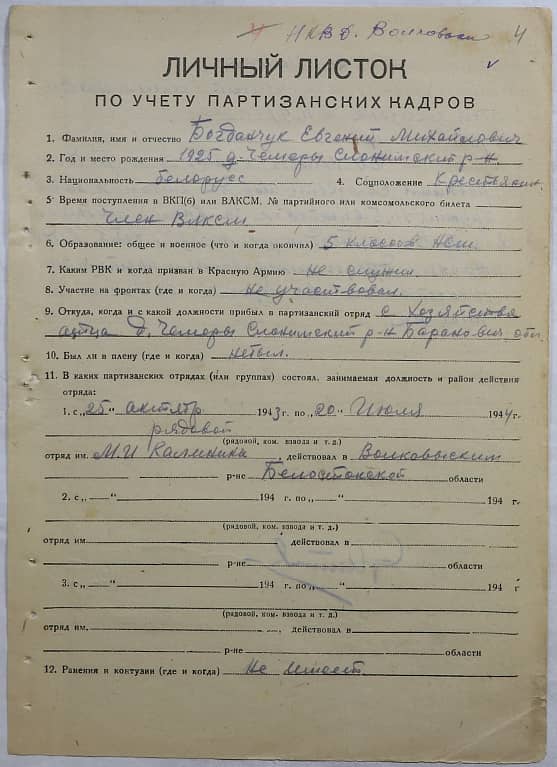 4 НКВД. Волковыск 4
ЛИЧНЫЙ ЛИСТОК
ПО УЧЕТУ ПАРТИЗАНСКИХ КАДРОВ
1. Фамилия, имя и отчество Богданчук Евгений Михайлович
2. Год и место рождения 1925 д. Чемеры Слонимский р-н.
3. Национальность белорусс 4. Соцположение Крестьянин
5. Время поступления в ВКП(б) или ВЛКСМ, № партийного или комсомольского билета
Член Влксм
6. Образование: общее и военное (что и когда окончил) 5 классов нсш.
7. Каким РВК и когда призван в Красную Армию не служил.
8. Участие на фронтах (где и когда) не участвовал.
9. Откуда, когда и с какой должности прибыл в партизанский отряд с хозяйства
атца д. Чемеры Слонимский р-н Баранович. обл.
10. Был ли в плену (где и когда) небыл.
11. В каких партизанских отрядах (или группах) состоял, занимаемая должность и район действия
отряда:
1. с „25“ актятр 1943 г. по „20“ Июля 1944 г.
рядовой
(рядовой, ком. взвода и т. д.)
отряд им. М.И Калинина действовал в Волковыским
р-не Белостокской области
2. с „ “ 194 г. по „ “ 194 г.
(рядовой, ком. взвода и т. д.)
отряд им. действовал в
р-не области
3. с „ “ 194 г. по „ “ 194 г
(рядовой, ком. взвода и т. д.)
отряд им. , действовал в
р-не области
12. Ранения и контузии (где и когда) Не имеет.